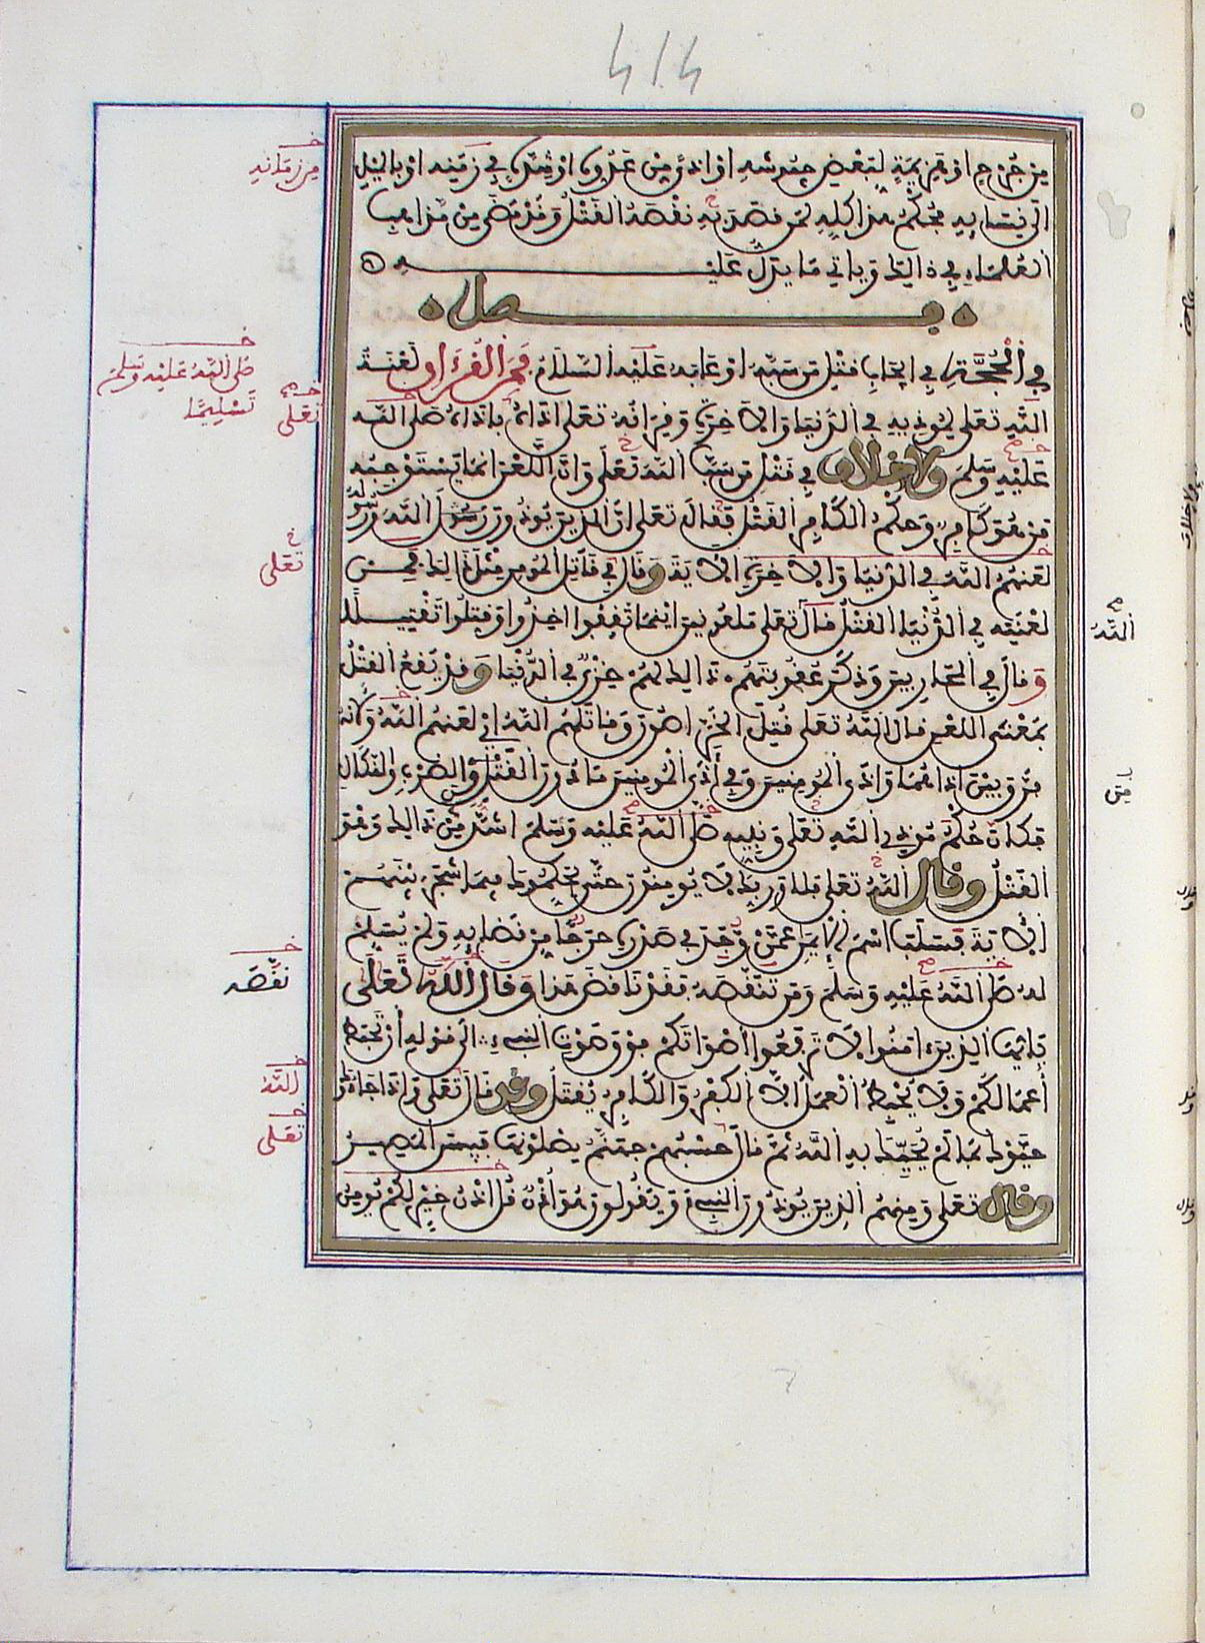 414
من جرح او هزيمة لبعض جيوشه او اذى من عدوه او شدة في زمنه او بالميل
الى نسايه فحكم هذا كله لمن قصد به نقصه القتل وقد مضى من مذاهب
العلماء في ذالك وياتي ما يدل عليه
فصل
في الحجة في ايجاب قتل من سبه او عابه عليه السلام فمن القرءان لعنة
الله تعلى لموذيه في الدنيا والاخرة وقرانه تعلى اذاه باذاه صلى الله
عليه وسلم ولا خلاف في قتل من سب الله تعلى وان اللعن انما يستوجبه
من هو كافر وحكم الكافر القتل فقال تعلى ان الذين يوذون الله ورسوله
لعنهم الله في الدنيا والاخرة الاية وقال في قاتل المومن مثل ذالك فمن
لعنته في الدنيا القتل قال تعلى ملعونين اينما ثقفوا اخذوا وقتلوا تقتيلا
وقال في المحاربين وذكر عقوبتهم ذالك لهم خزي في الدنيا وقد يقع القتل
بمعنى اللعن قال الله تعلى قتل الخراصون وقاتلهم الله اي لعنهم الله ولانه
فرق بين اذاهما واذى المومنين وفي أذى المومنين ما دون القتل من الضرب والنكال
فكان حكم موذي الله تعلى ونبيه صلى الله عليه وسلم اشد من ذالك وهو
القتل وقال الله تعلى فلا وربك لا يومنون حتى يحكموك فيما شجر بينهم
الاية فسلب اسم الايمن عمن وجد في صدره حرجا من قضايه ولم يسلم
له صلى الله عليه وسلم ومن تنقصه فقد ناقض هذا وقال الله تعلى
يايها الذين ءامنوا لا ترفعوا أصواتكم فوق صوت النبيء الى قوله أن تحبط
أعمالكم ولا يحبط العمل الا الكفر والكافر يقتل وقد قال تعلى واذا جاءوك
حيوك بما لم يحيك به الله ثم قال حسبهم جهنم يصلونها فبيس المصير
وقال تعلى ومنهم الذين يوذون النبيء ويقولون هو أذن قل اذن خير لكم يومن
من زمانه
صلى الله عليه وسلم
تسليما
تعلى
تعلى
نقصه
الله
تعلى
الله
من